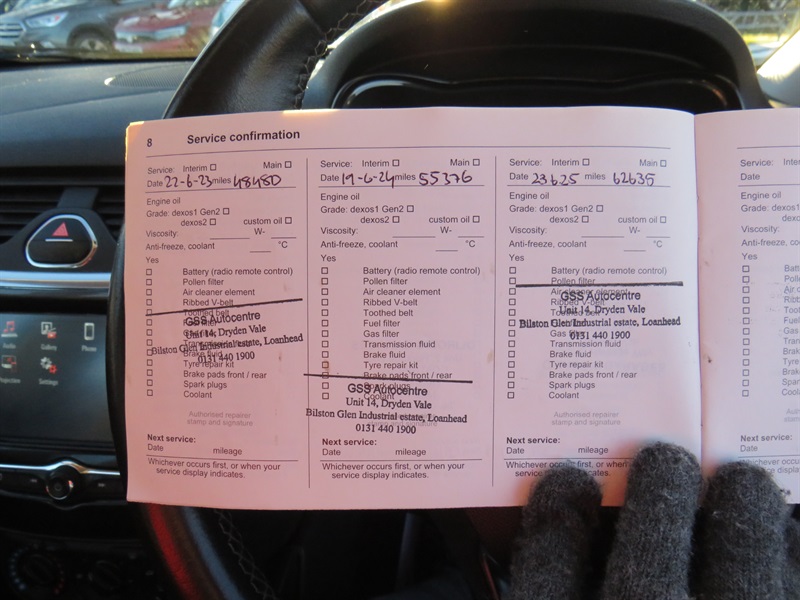 8 Service confirmation
Service: Interim Main
Date 22-6-23 miles 48480
Engine oil
Grade: dexos1 Gen2
dexos2 custom oil
Viscosity: W-
Anti-freeze, coolant °C
Yes
Battery (radio remote control)
Pollen filter
Air cleaner element
Ribbed V-belt
Toothed belt
GSS Autocentre
Unit 14, Dryden Vale
Bilston Glen Industrial estate, Loanhead
Brake fluid
0131 440 1900
Tyre repair kit
Brake pads front / rear
Spark plugs
Coolant
Authorised repairer
stamp and signature
Next service:
Date mileage
Whichever occurs first, or when your
service display indicates.
Service: Interim Main
Date 19-6-24 miles 55376
Engine oil
Grade: dexos1 Gen2
dexos2 custom oil
Viscosity: W-
Anti-freeze, coolant °C
Yes
Battery (radio remote control)
Pollen filter
Air cleaner element
Ribbed V-belt
Toothed belt
Fuel filter
Gas filter
Transmission fluid
Brake fluid
Tyre repair kit
Brake pads front / rear
Spark plugs
GSS Autocentre
Coolant
Unit 14, Dryden Vale
Bilston Glen Industrial estate, Loanhead
0131 440 1900
Next service:
Date mileage
Whichever occurs first, or when your
service display indicates.
Service: Interim Main
Date 23 6 25 miles 62635
Engine oil
Grade: dexos1 Gen2
dexos2 custom oil
Viscosity: W-
Anti-freeze, coolant °C
Yes
Battery (radio remote control)
Pollen filter
Air cleaner element
GSS Autocentre
Ribbed V-belt
Unit 14, Dryden Vale
Bilston Glen Industrial estate, Loanhead
0131 440 1900
Transmission fluid
Brake fluid
Tyre repair kit
Brake pads front / rear
Spark plugs
Coolant
Authorised repairer
stamp and signature
Next service:
Date mileage
Whichever occurs first, or when your
service display indicates.
Service:
Date
Engine oil
Grade: dexos1
Viscosity:
Anti-freeze, co
Yes
Next service:
Date
Audio
Gallery
Phone
Settings